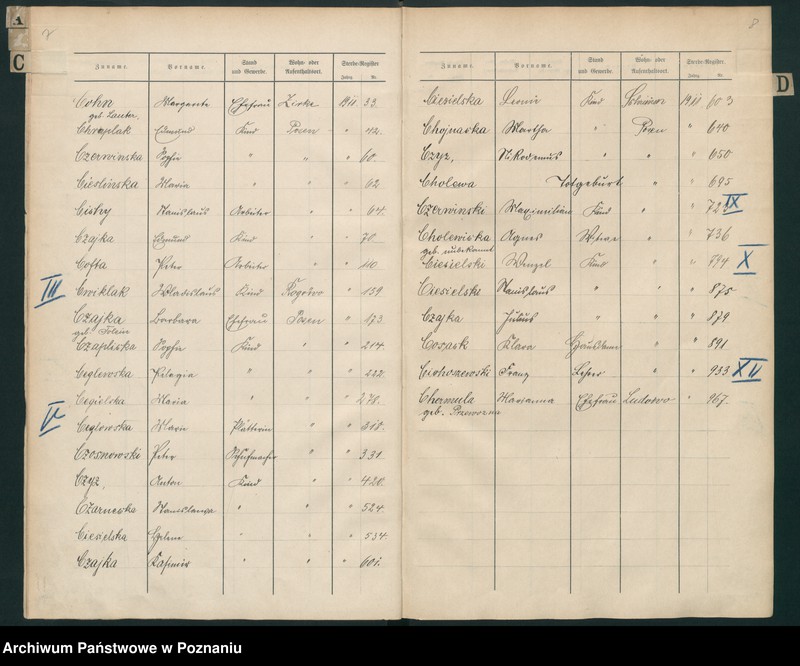 A
C
7
Zuname. Vorname. Stand und Gewerbe. Wohn- oder Aufenthaltsort. Sterbe-Register
Jahrg. Nr.
Cohn Margarete Ehefrau Zirke 1911 33.
geb. Lauter.
Chroplak Edmund Kind Posen " 42.
Czerwinska Sophie " " " 60.
Cieslinska Maria " " " 62
Cichy Stanislaus Arbeiter " " 64.
Czajka Edmund Kind " " 70
Cofta Peter Arbeiter " " 110
III Cwiklak Wladislaus Kind " 159.
Czajka Barbara Ehefrau Posen " 173.
geb.
Czaplicka Sophie Kind " " 214.
Ceglewska Pelagia " " " 222.
Cegielska Maria " " " 278.
V Ceglowska Marie Plätterin " "
Czosnowski Peter Schuhmacher " " 331.
Czyz, Anton Kind " " 420.
Czarnecka Stanislawa " " " 524
Ciesielska Helene " " " 534
Czajka Kasimir " " " 601.
8
D
Zuname. Vorname. Stand und Gewerbe. Wohn- oder Aufenthaltsort. Sterbe-Register.
Jahrg. Nr.
Ciesielska Kind 1911 603
Chojnacka Martha " Posen " 640
Czyz, Nikodemus " " " 650
Cholewa Totgeburt " " 695
Czerwinski Maximilian Kind " " IX
Cholewicka Agnes Witwe " " 736
geb. unbekannt
Ciesielski Wenzel Kind " " 794 X
Ciesielski Stanislaus " " " 875
Czajka Julius " " " 879
Cosack Klara Haustame " " 891
Franz Lehrer " " 933 XII
Chormula Marianna Ehefrau Ludowo " 967.
geb. Przewozna
Archiwum Państwowe w Poznaniu